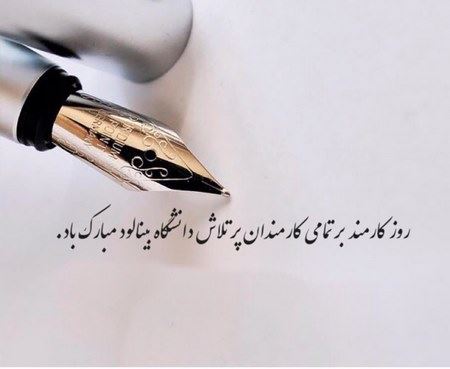 روز کارمند بر تمامی کارمندان پر تلاش دانشگاه بینالود مبارک باد.